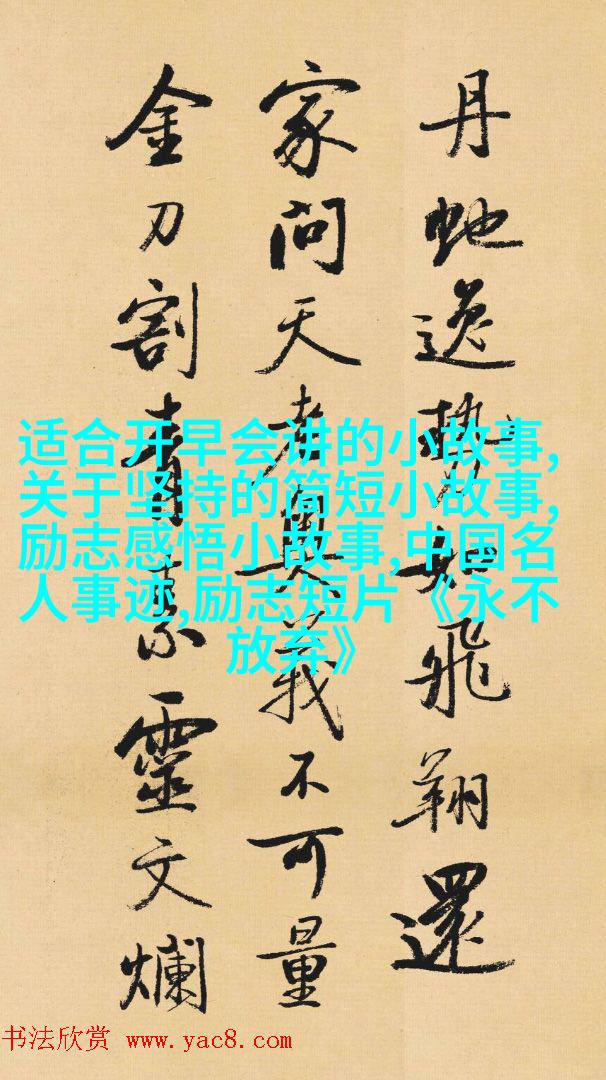 丹虵逸勢如飛翔還
家問天老奧義不可量
金刀割青素靈文爛
适合开早会讲的小故事,
关于坚持的简短小故事,
励志感悟小故事,中国名
人事迹,励志短片《永不
放弃》
书法欣赏 www.yac8.com